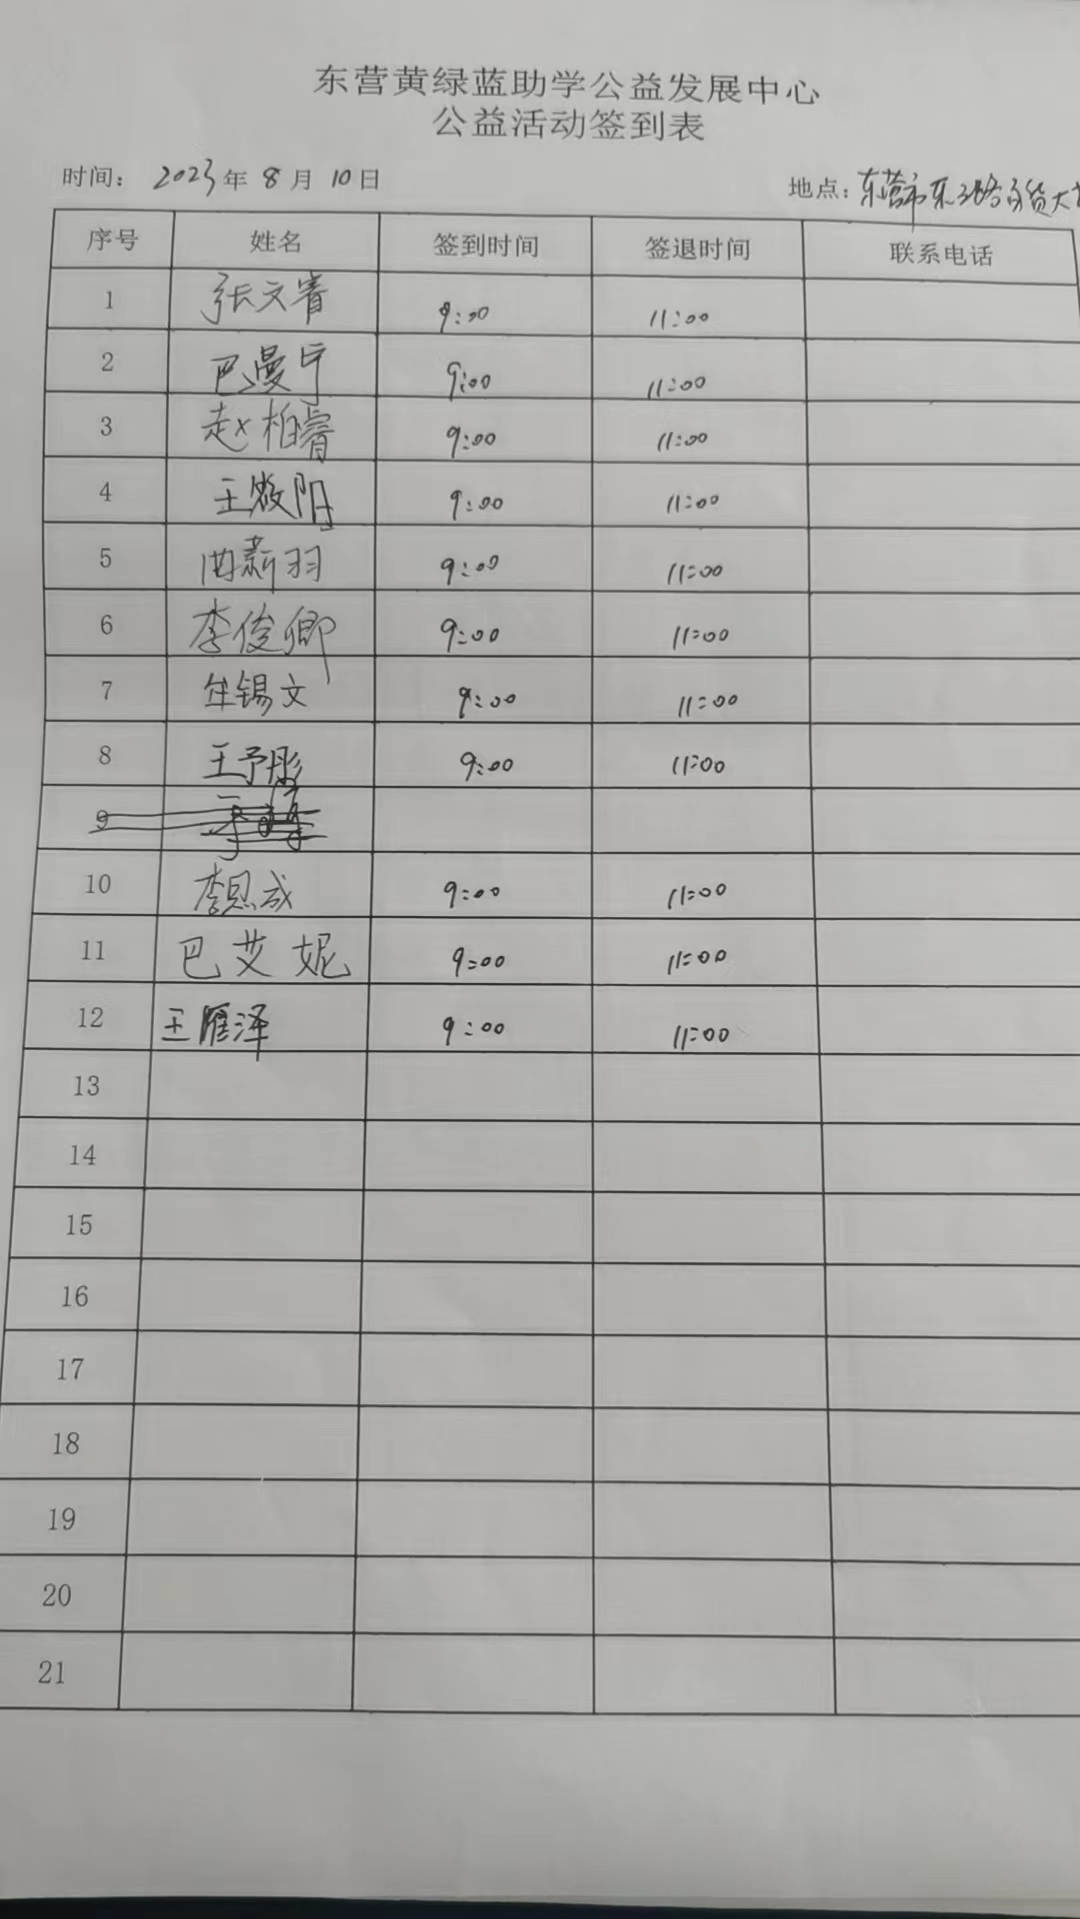 东营黄绿蓝助学公益发展中心
公益活动签到表
时间： 2023 年 8 月 10 日 地点：东营市东三路百货大
序号 姓名 签到时间 签退时间 联系电话
1 张文睿 9:00 11:00
2 巴曼宁 9:00 11:00
3 赵柏睿 9:00 11:00
4 王筱阳 9:00 11:00
5 曲新羽 9:00 11:00
6 李俊卿 9:00 11:00
7 牟锡文 9:00 11:00
8 王予彤 9:00 11:00
9
10 李思成 9:00 11:00
11 巴艾妮 9:00 11:00
12 王雁泽 9:00 11:00
13
14
15
16
17
18
19
20
21